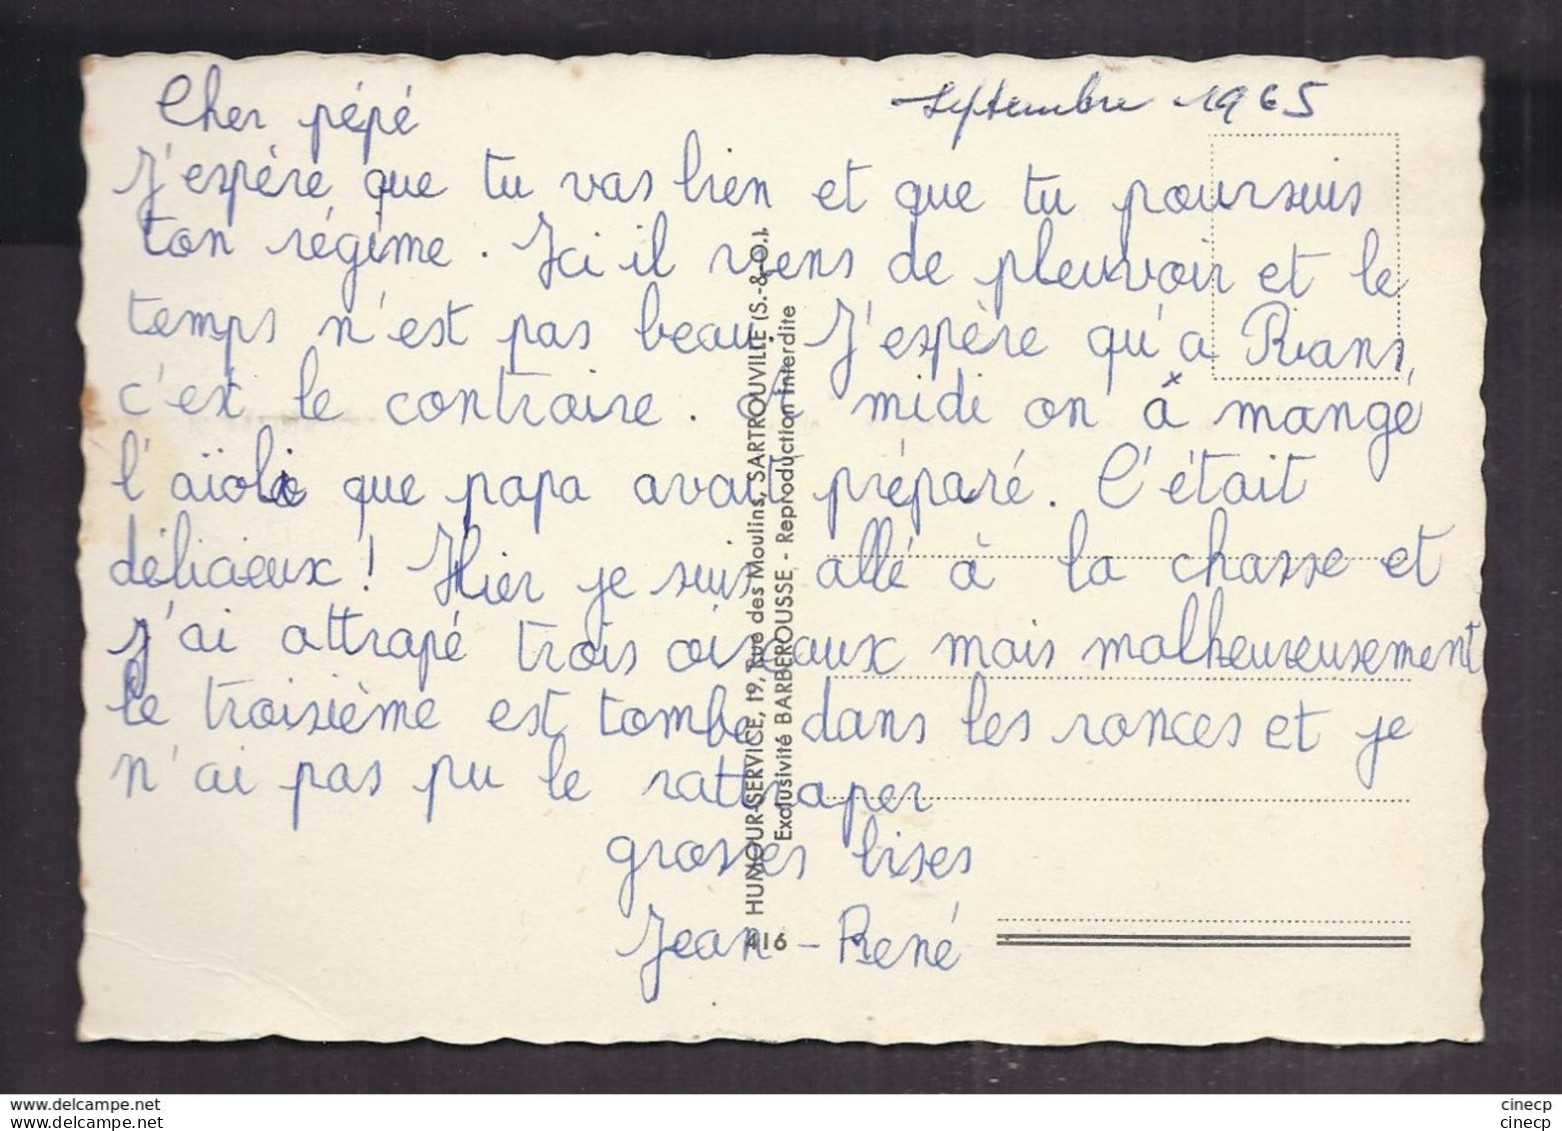 septembre 1965
Cher pépé
J'espère que tu vas bien et que tu poursuis
ton régime. Ici il viens de pleuvoir et le
temps n'est pas beau. J'espère qu'a Rians,
c'est le contraire. A midi on á mangé
l'aïoli que papa avait préparé. C'était
délicieux ! Hier je suis allé à la chasse et
j'ai attrapé trois oiseaux mais malheureusement
le troisième est tombé dans les ronces et je
n'ai pas pu le rattraper
grosses bises
Jean-René
HUMOUR-SERVICE, 19, Rue des Moulins, SARTROUVILLE (S.-&-O.).
Exclusivité BARBEROUSSE - Reproduction Interdite
416
www.delcampe.net
www.delcampe.net
cinecp
cinecp